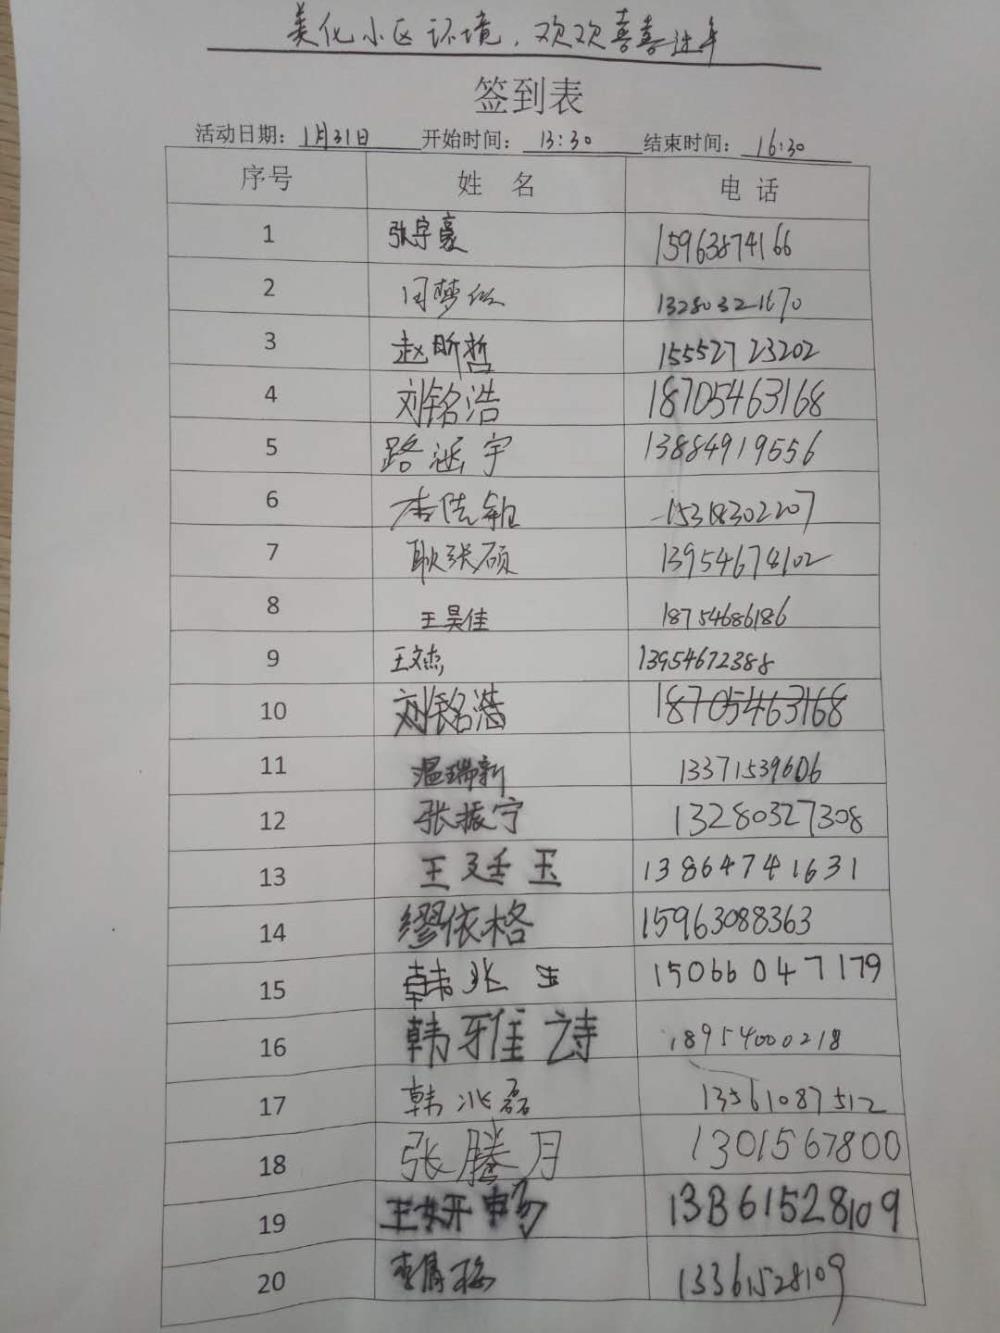 美化小区环境，欢欢喜喜过年
签到表
活动日期：1月31日 开始时间：13:30 结束时间：16:30
序号 姓名 电话
1 张宇豪 15963874166
2 闫梦 13280321670
3 赵昕哲 15552723202
4 刘铭浩 18705463168
5 路涵宇 13884919556
6 15318302207
7 耿张硕 13954678102
8 王昊佳 18754686186
9 王文杰 13954672388
10 刘铭浩 18705463168
11 温瑞新 13371539606
12 张振宁 13280327308
13 王廷玉 13864741631
14 缪依格 15963088363
15 韩兆玉 15066047179
16 韩雅诗 18954000218
17 韩兆磊 13561087512
18 张腾月 1301567800
19 王妍畅 13361528109
20 13361528109